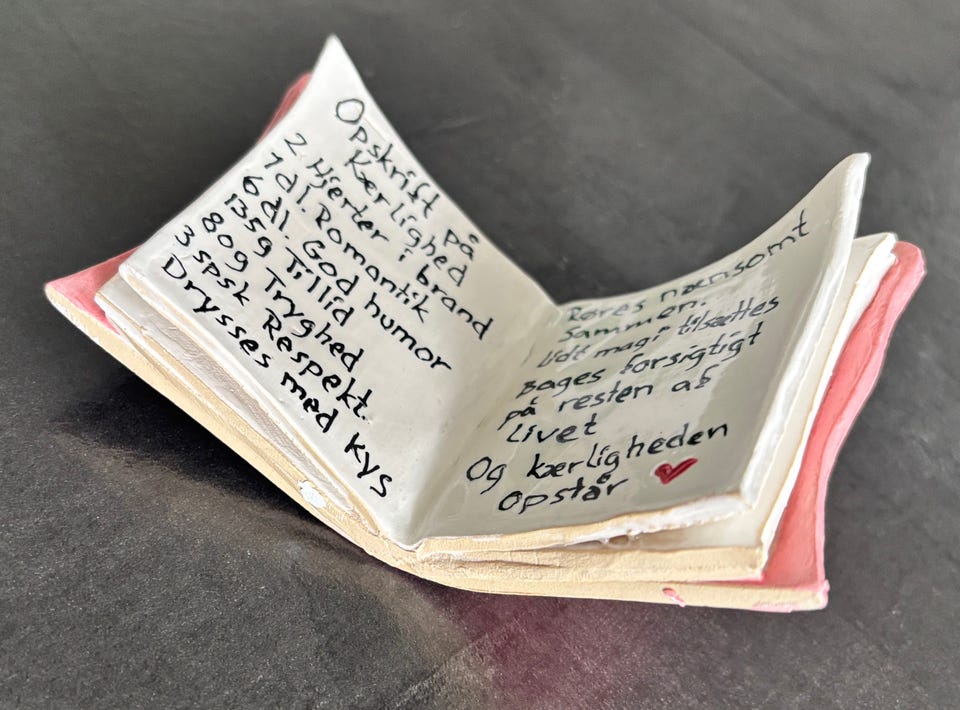 Opskrift på
Kærlighed
2 Hjerter i brand
1 dl. Romantik
6 dl God humor
135g Tillid
80g Tryghed
3 spsk Respekt.
Drysses med kys
Røres nænsomt
sammen.
lidt magi tilsættes
Bages forsigtigt
på resten af
livet
Og kærligheden
opstår